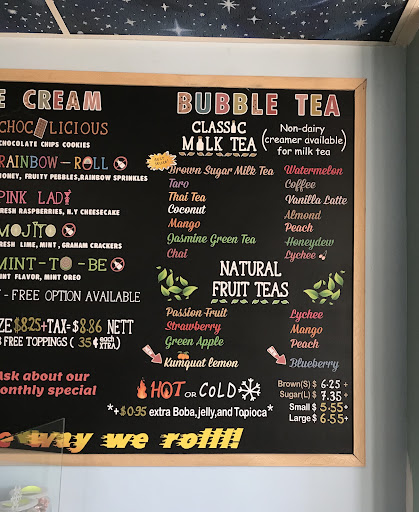 E CREAM
CHOC LICIOUS
CHOCOLATE CHIPS COOKIES
RAINBOW-ROLL
HONEY, FRUITY PEBBLES,RAINBOW SPRINKLES
PINK LADY
FRESH RASPBERRIES, N.Y CHEESECAKE
MOJITO
FRESH LIME, MINT, GRAHAM CRACKERS
MINT-TO-BE
MINT FLAVOR, MINT OREO
- FREE OPTION AVAILABLE
ZE $8.25+TAX=$8.86 NETT
3 FREE TOPPINGS ( 35¢ each XTRA)
Ask about our
monthly special
BUBBLE TEA
CLASSIC
MILK TEA
(Non-dairy
creamer available
for milk tea)
BEST SELLER
Brown Sugar Milk Tea
Taro
Thai Tea
Coconut
Mango
Jasmine Green Tea
Chai
Watermelon
Coffee
Vanilla Latte
Almond
Peach
Honeydew
Lychee
NATURAL
FRUIT TEAS
Passion Fruit
Strawberry
Green Apple
Kumquat lemon
Lychee
Mango
Peach
Blueberry
HOT OR COLD
*+$0.95 extra Boba,jelly,and Tapioca*
Brown(S) $ 6.25 +
Sugar(L) $ 7.35 +
Small $ 5.55+
Large $ 6.55+
e way we rolll!